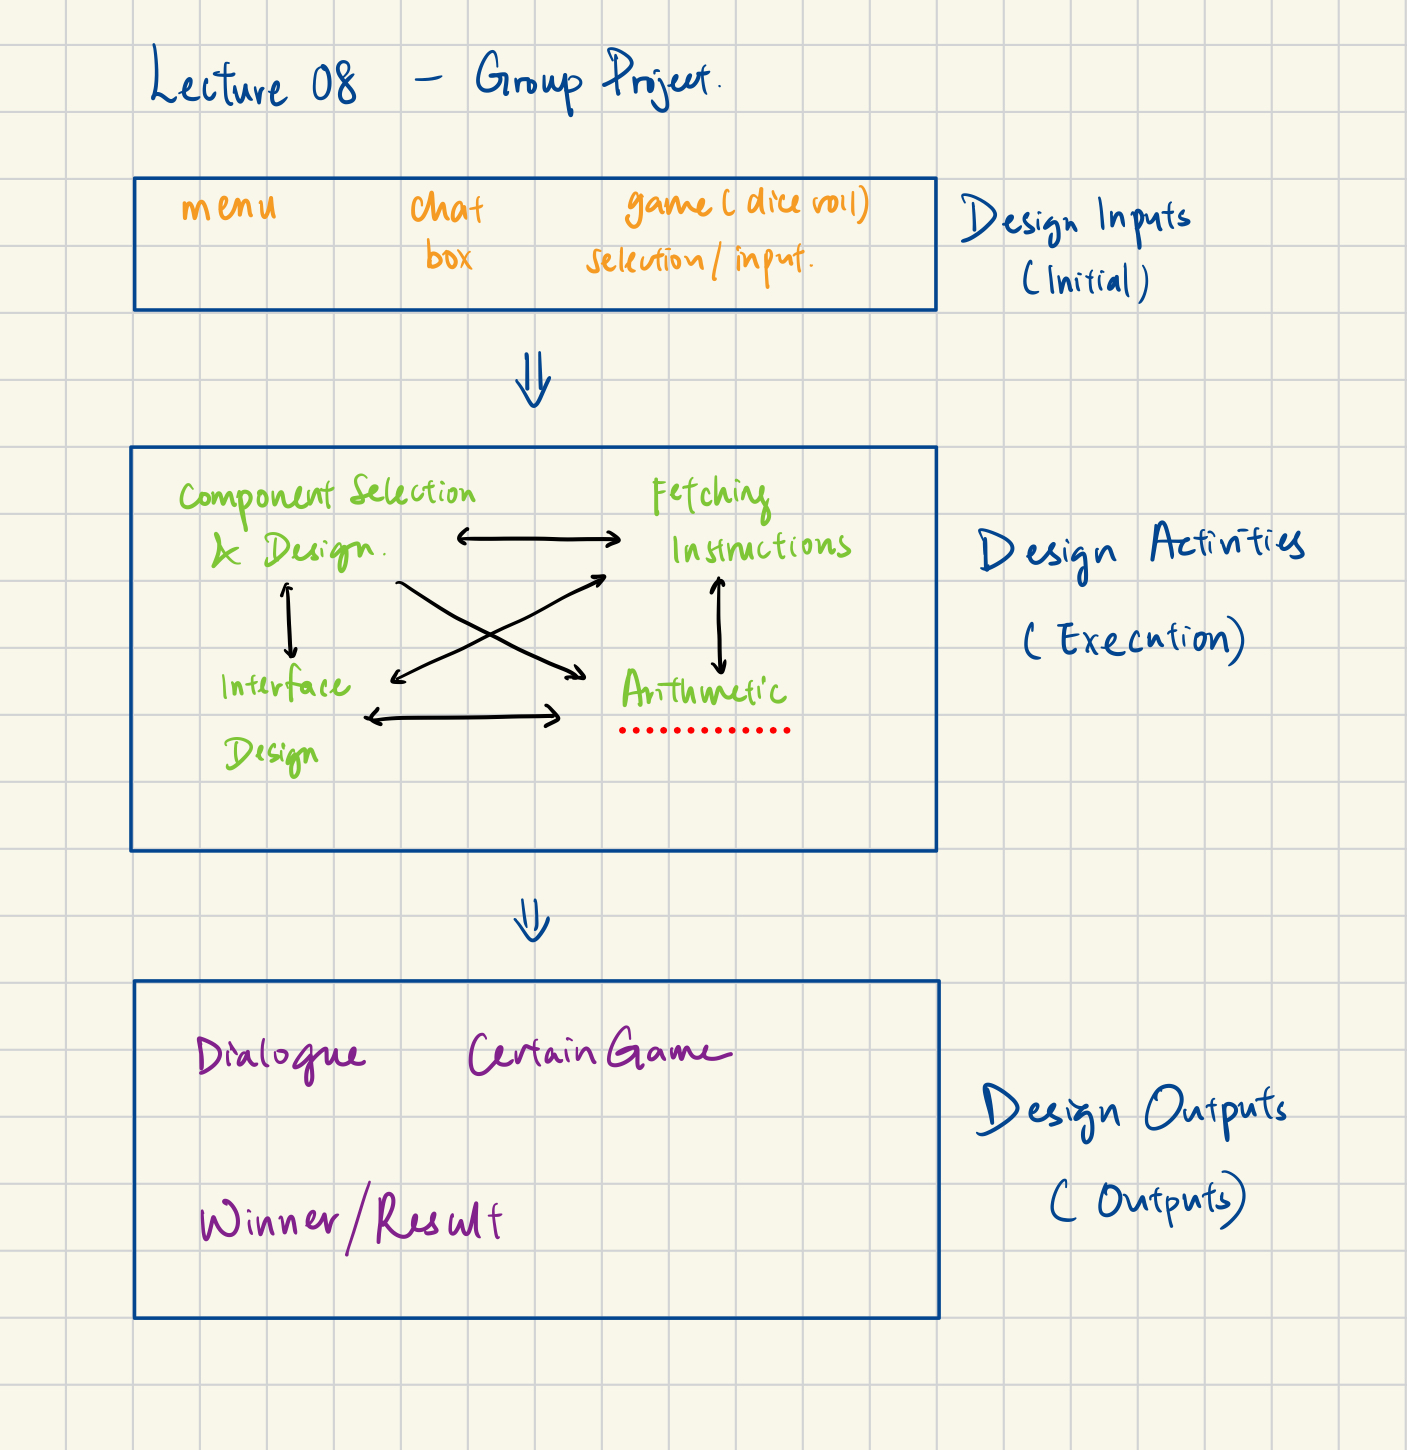 Lecture 08 - Group Project.
menu chat game (dice roll)
box selection/input.
Design Inputs
(Initial)
Component Selection Fetching
& Design. Instructions
Interface Arithmetic
Design
Design Activities
(Execution)
Dialogue Certain Game
Winner/Result
Design Outputs
(Outputs)